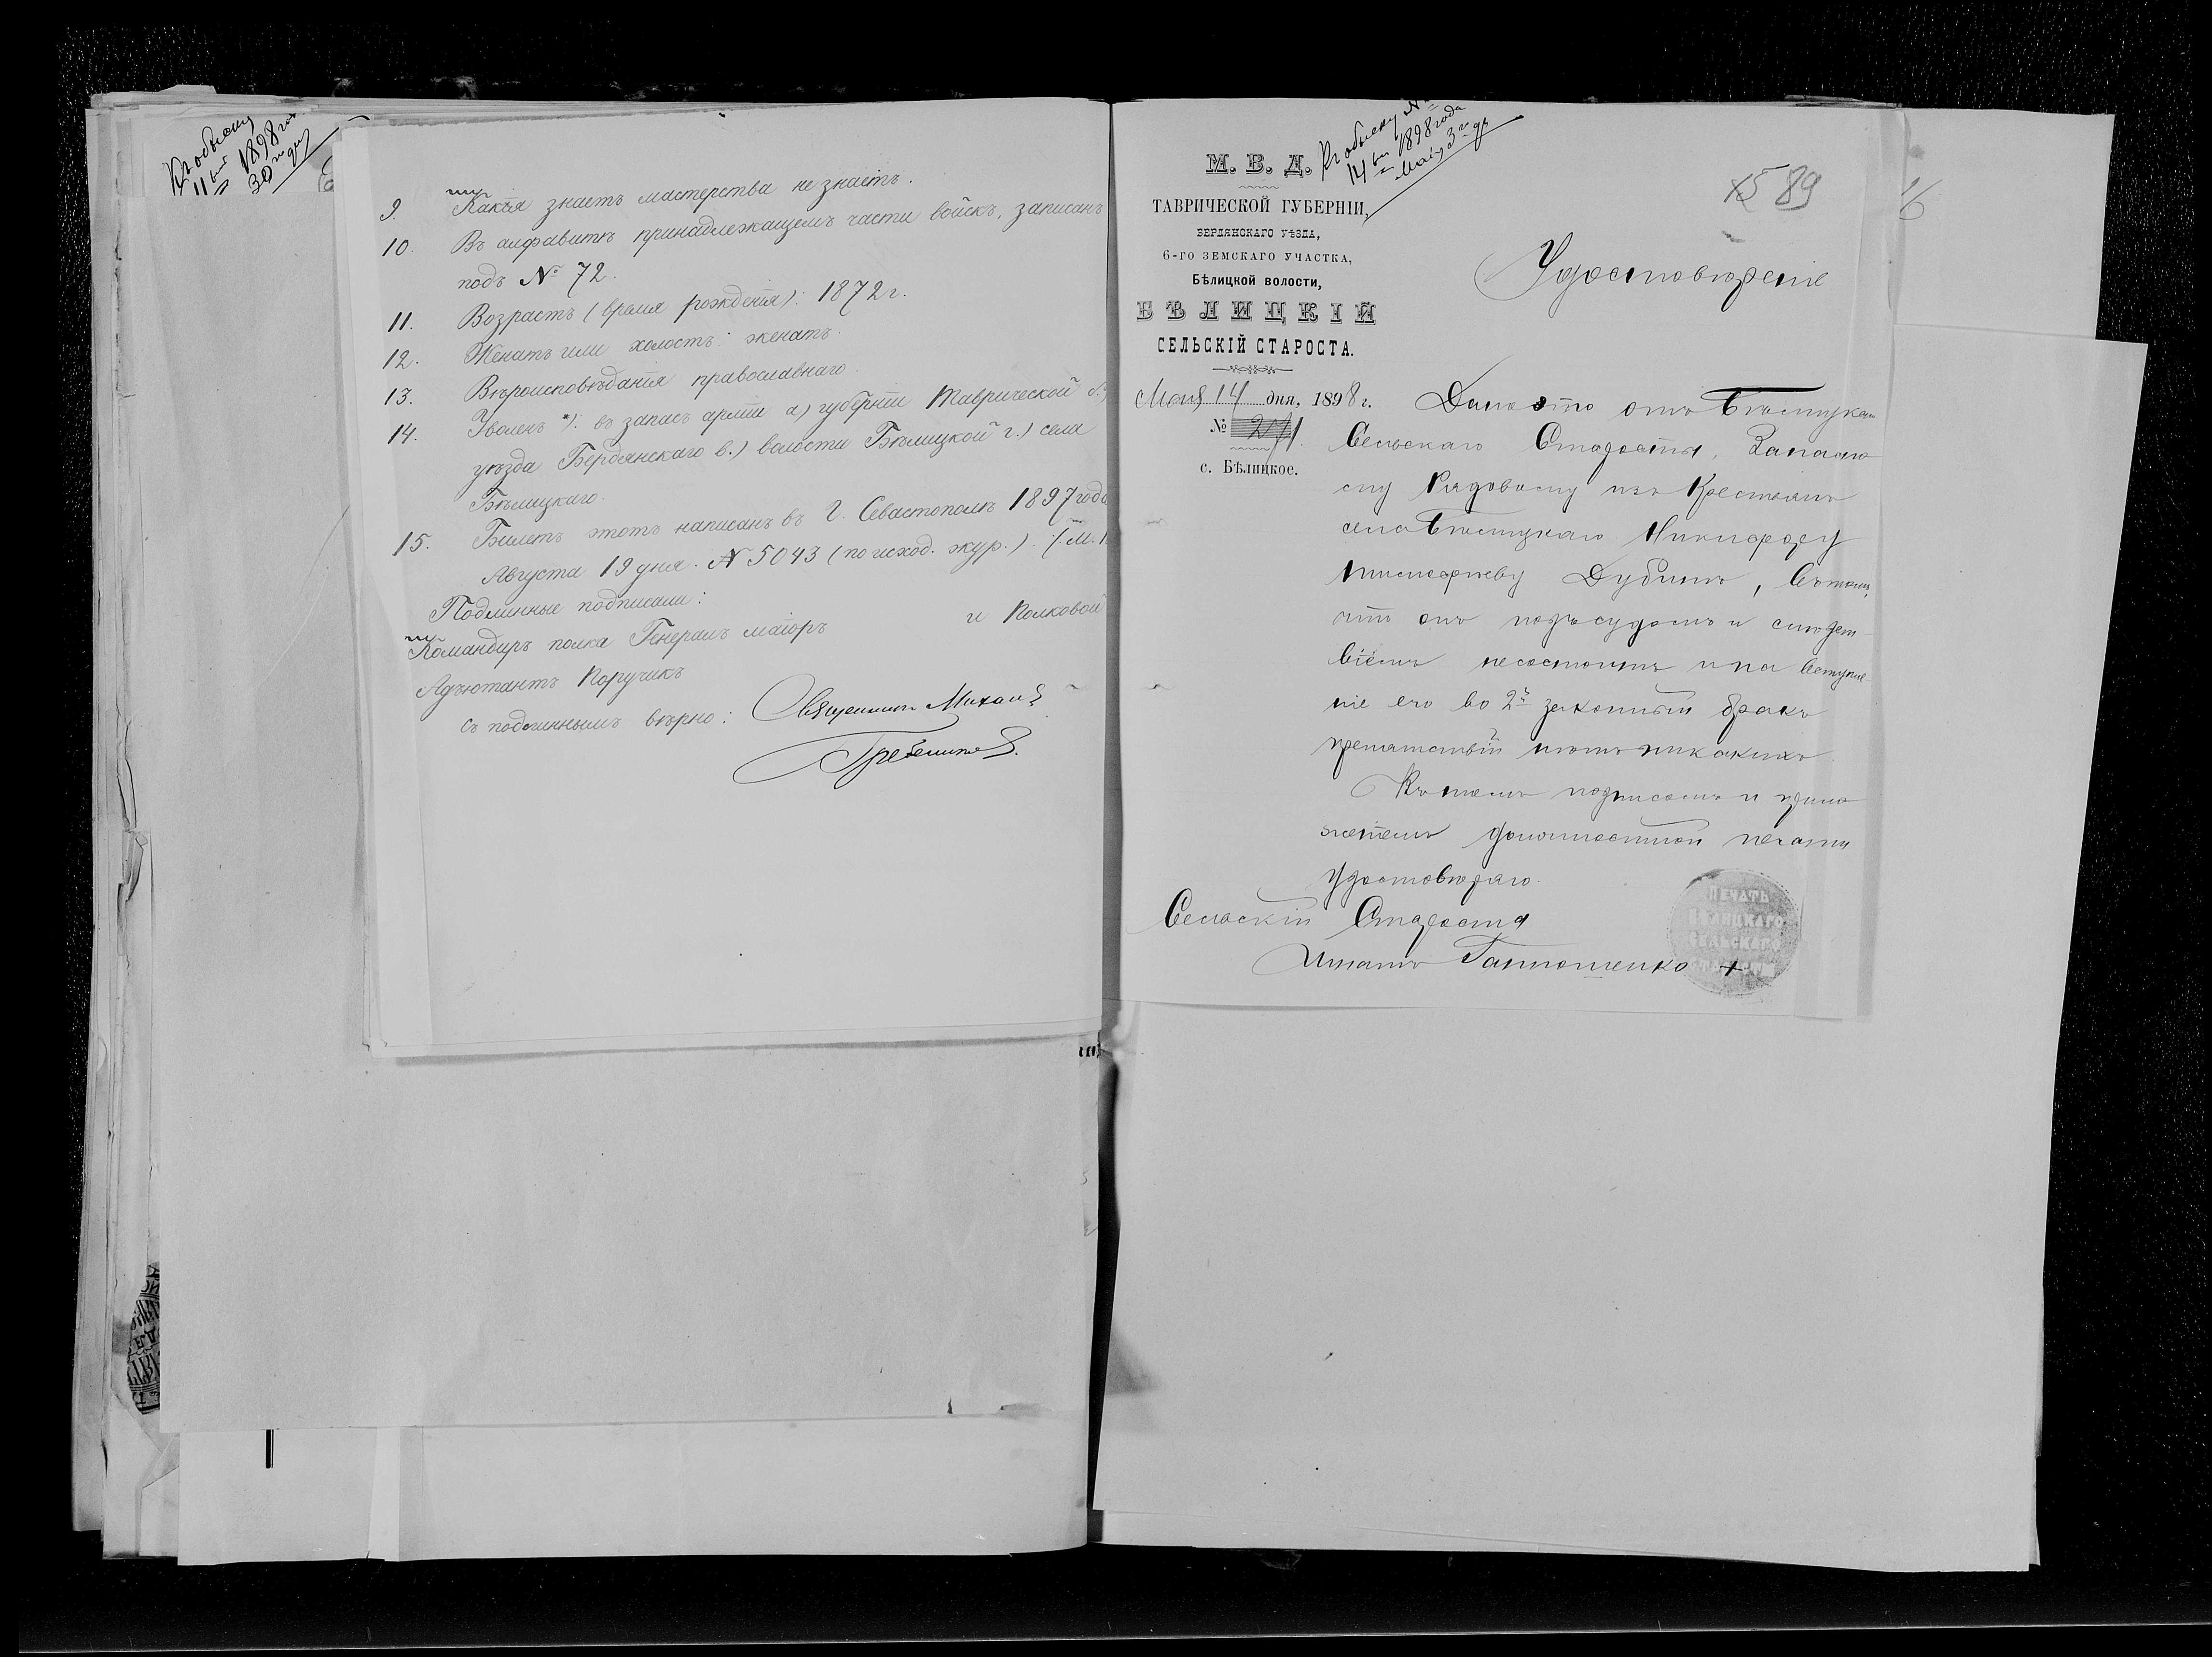 Къ обыску
11 1898 года
30 дня
9. Какія знаетъ мастерства не знаетъ.
10. Въ алфавитѣ принадлежащемъ части войскъ, записанъ
подъ № 72.
11. Возрастъ (время рожденія): 1872 г.
12. Женатъ или холостъ: женатъ.
13. Вѣроисповѣданія православнаго.
14. Уволенъ *): въ запасъ арміи а) губерніи Таврической б.)
уѣзда Бердянскаго в.) волости Бѣлицкой г.) села
Бѣлицкаго.
15. Билетъ этотъ написанъ въ Г. Севастополѣ 1897 года
Августа 19 дня. № 5043 (по исход. жур.). (М.
Подлинные подписали:
Командиръ полка Генералъ маіоръ и Полковой
Адъютантъ Поручикъ
Съ подлиннымъ вѣрно: Священникъ Михаилъ
Гребенниковъ.
Къ обыску №
14 1898 года
Мая 3 дн
М. В. Д.
ТАВРИЧЕСКОЙ ГУБЕРНІИ,
БЕРДЯНСКАГО УѢЗДА,
6-ГО ЗЕМСКАГО УЧАСТКА,
Бѣлицкой волости,
БѢЛИЦКІЙ
СЕЛЬСКІЙ СТАРОСТА.
Мая 14 дня, 1898 г.
№ 271.
с. Бѣлицкое.
15 89
Удостовѣреніе
Дано это отъ Бѣлицкаго
Сельскаго Старосты, Запасно
му Рядовому изъ Крестьянъ
села Бѣлицкаго Никифору
Тимофѣеву Дубинѣ, Въ томъ,
что онъ подъ судомъ и слѣдст
віемъ не состоитъ и на Вступле
ніе его во 2й законный бракъ
препятствій нѣтъ никакихъ
Въ чемъ подписомъ и прило
женіемъ должностной печати
удостовѣряю.
Сельскій Староста
Игнатъ Ганнощенко +
ПЕЧАТЬ
БѢЛИЦКАГО
СЕЛЬСКАГО
СТАРОСТЫ